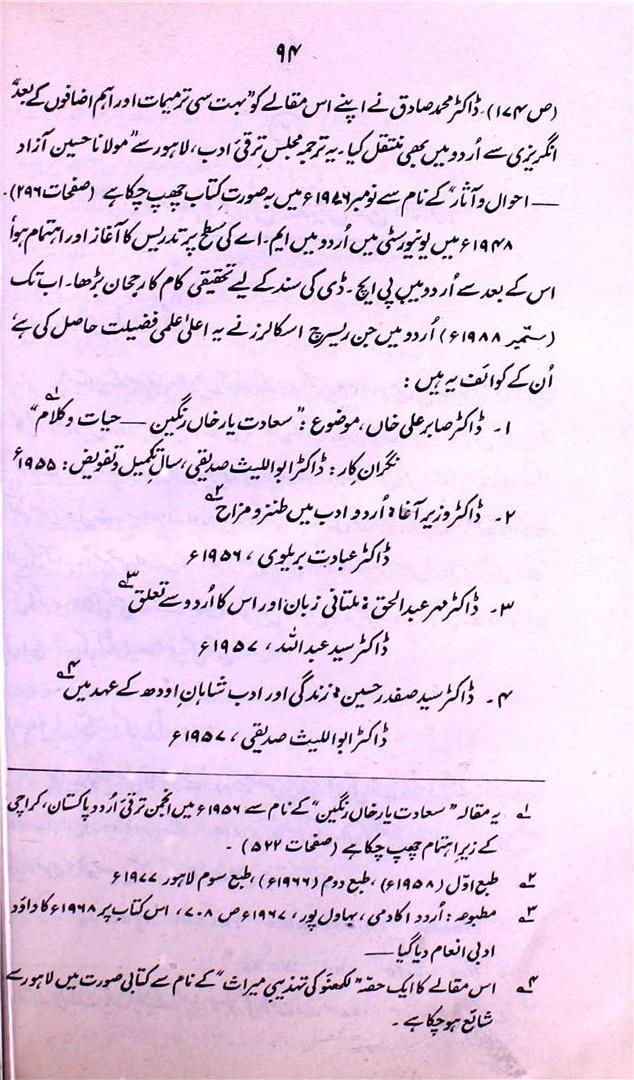 ۹۴
(ص ۱۷۴)۔ ڈاکٹر محمد صادق نے اپنے اس مقالے کو "بہت سی ترمیمات اور اہم اضافوں کے بعد"
انگریزی سے اُردو میں بھی منتقل کیا۔ یہ ترجمہ مجلسِ ترقیِ ادب، لاہور سے "مولانا حسین آزاد
— احوال و آثار" کے نام سے نومبر ۱۹۷۶ء میں بہ صورتِ کتاب چھپ چکا ہے (صفحات ۲۹۶)۔
۱۹۴۸ء میں یونیورسٹی میں اُردو میں ایم۔ اے کی سطح پر تدریس کا آغاز اور اہتمام ہوا
اس کے بعد سے اُردو میں پی ایچ۔ ڈی کی سند کے لیے تحقیقی کام کا رجحان بڑھا۔ اب تک
(ستمبر ۱۹۸۸ء) اُردو میں جن ریسرچ اسکالرز نے یہ اعلیٰ علمی فضیلت حاصل کی ہے،
اُن کے کوائف یہ ہیں :
۱۔ ڈاکٹر صابر علی خاں، موضوع : "سعادت یار خاں رنگین — حیات و کلام" ۱؎
نگران کار : ڈاکٹر ابواللیث صدیقی، سالِ تکمیل و تفویض : ۱۹۵۵ء
۲۔ ڈاکٹر وزیر آغا : اُردو ادب میں طنز و مزاح ۲؎
ڈاکٹر عبادت بریلوی ، ۱۹۵۶ء
۳۔ ڈاکٹر مہر عبدالحق : ملتانی زبان اور اس کا اُردو سے تعلق ۳؎
ڈاکٹر سید عبداللہ ، ۱۹۵۷ء
۴۔ ڈاکٹر سید صفدر حسین : زندگی اور ادب شاہانِ اودھ کے عہد میں ۴؎
ڈاکٹر ابواللیث صدیقی ، ۱۹۵۷ء
۱؎ یہ مقالہ "سعادت یار خاں رنگین" کے نام سے ۱۹۵۶ء میں انجمن ترقیِ اُردو پاکستان، کراچی
کے زیرِ اہتمام چھپ چکا ہے (صفحات ۵۲۲) ۔
۲؎ طبع اوّل (۱۹۵۸ء)، طبع دوم (۱۹۶۶ء)، طبع سوم لاہور ۱۹۷۷ء
۳؎ مطبوعہ : اُردو اکادمی، بہاول پور، ۱۹۶۷ء ص ۷۰۸، اس کتاب پر ۱۹۶۸ء کا داؤد
ادبی انعام دیا گیا —
۴؎ اس مقالے کا ایک حصّہ "لکھنؤ کی تہذیبی میراث" کے نام سے کتابی صورت میں لاہور سے
شائع ہو چکا ہے ۔